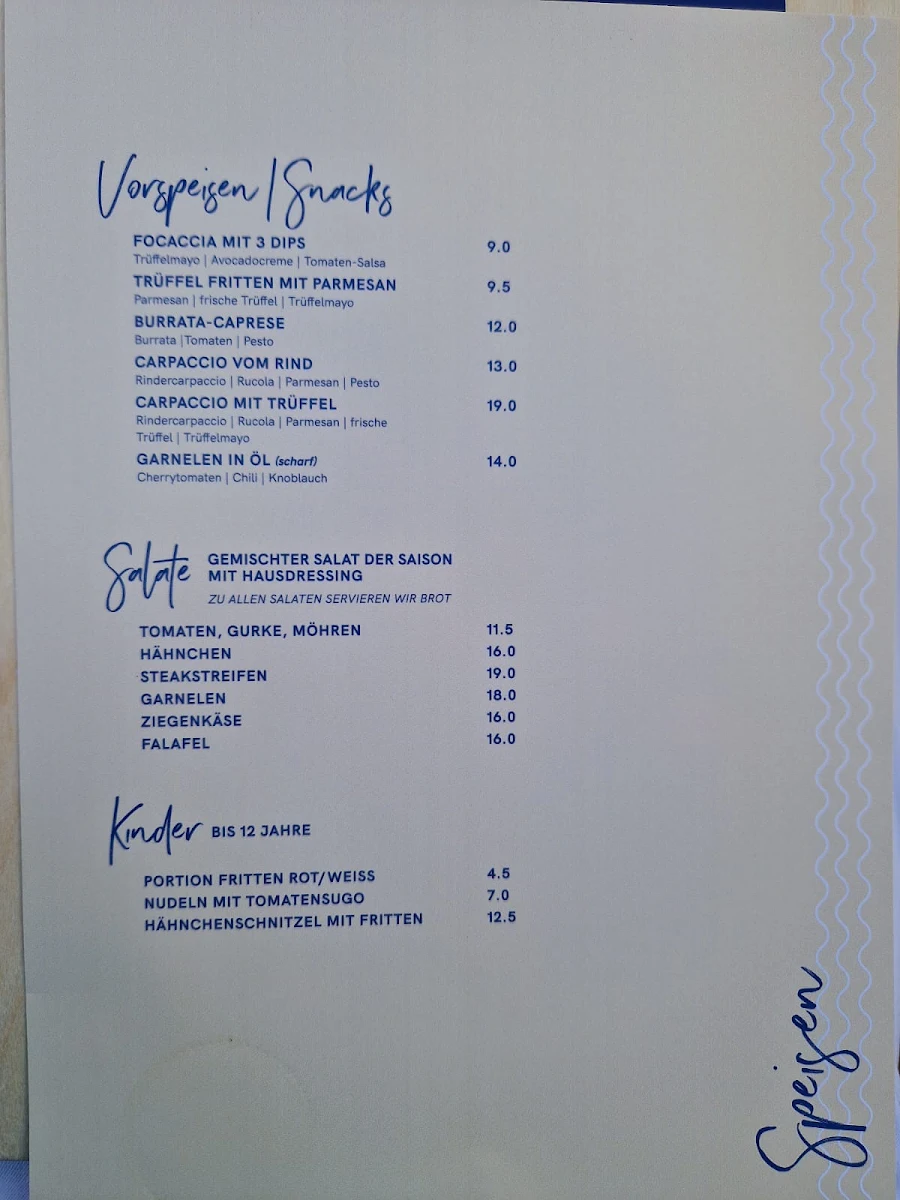 Vorspeisen | Snacks
FOCACCIA MIT 3 DIPS 9.0
Trüffelmayo | Avocadocreme | Tomaten-Salsa
TRÜFFEL FRITTEN MIT PARMESAN 9.5
Parmesan | frische Trüffel | Trüffelmayo
BURRATA-CAPRESE 12.0
Burrata |Tomaten | Pesto
CARPACCIO VOM RIND 13.0
Rindercarpaccio | Rucola | Parmesan | Pesto
CARPACCIO MIT TRÜFFEL 19.0
Rindercarpaccio | Rucola | Parmesan | frische
Trüffel | Trüffelmayo
GARNELEN IN ÖL (scharf) 14.0
Cherrytomaten | Chili | Knoblauch
Salate GEMISCHTER SALAT DER SAISON
MIT HAUSDRESSING
ZU ALLEN SALATEN SERVIEREN WIR BROT
TOMATEN, GURKE, MÖHREN 11.5
HÄHNCHEN 16.0
STEAKSTREIFEN 19.0
GARNELEN 18.0
ZIEGENKÄSE 16.0
FALAFEL 16.0
Kinder BIS 12 JAHRE
PORTION FRITTEN ROT/WEISS 4.5
NUDELN MIT TOMATENSUGO 7.0
HÄHNCHENSCHNITZEL MIT FRITTEN 12.5
Speisen